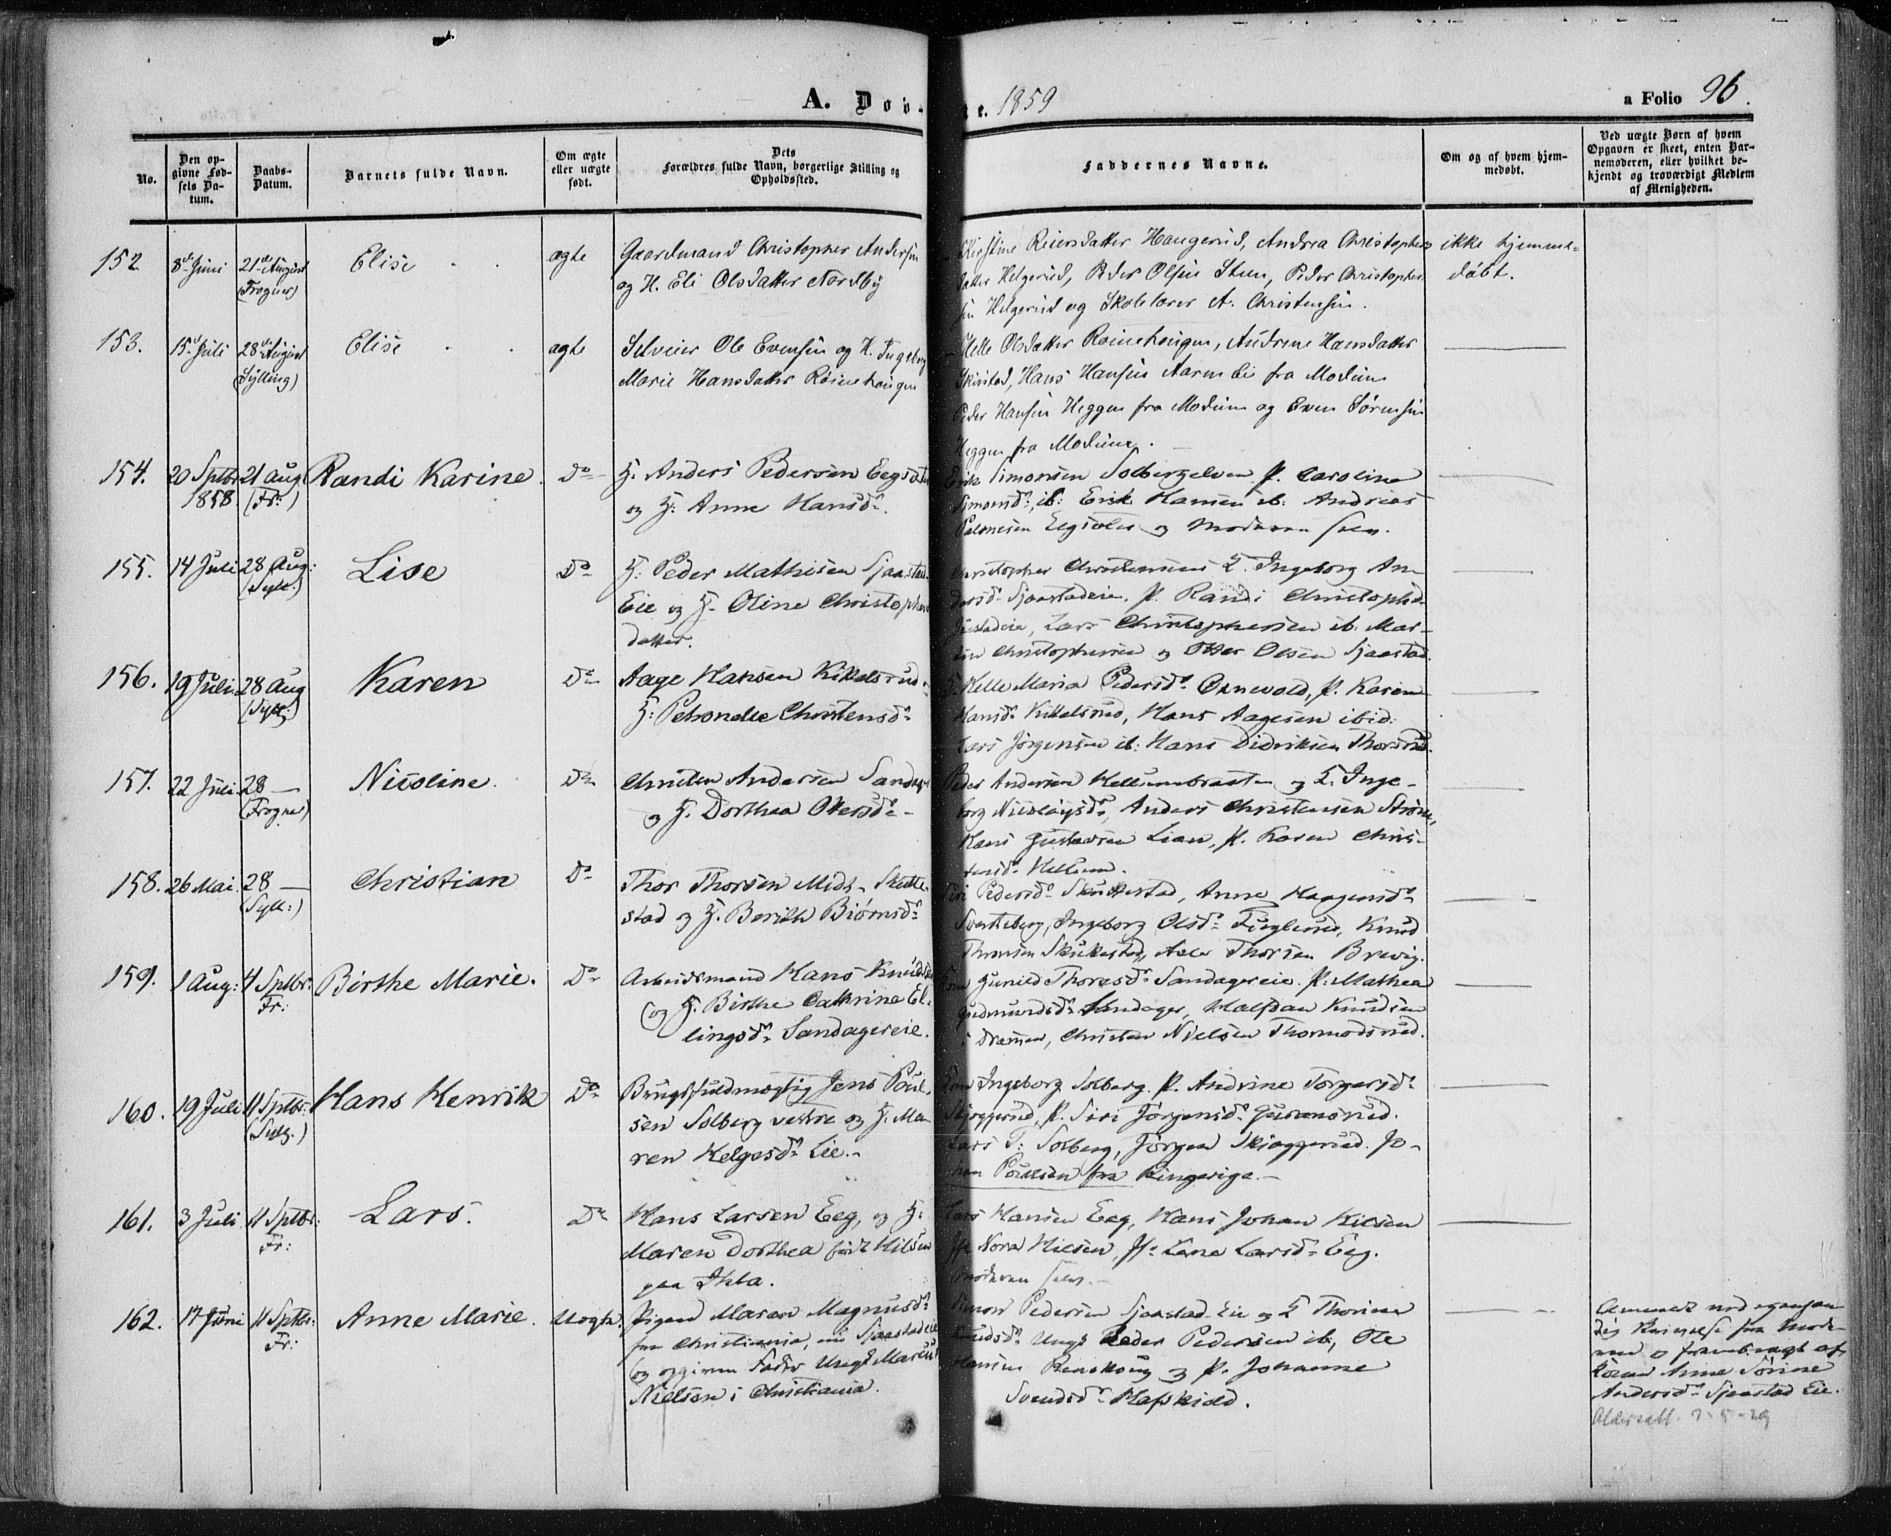 A. Døv-
te. 1859
a Folio 96.
No.
Den op-
givne Fød-
sels Da-
tum.
Daabs-
Datum.
Barnets fulde Navn.
Om ægte
eller uægte
født.
Dets
Forældres fulde Navn, borgerlige Stilling og
Opholdssted.
Faddernes Navne.
Om og af hvem hjem-
medøbt.
Ved uægte Børn af hvem
Opgaven er skeet, enten Bar-
nemoderen, eller hvilket be-
kjendt og troværdigt Medlem
af Menigheden.
152
8de Juni
21de August
(Frogner)
Elise
ægte
Gaardmand Christopher Andersen
og H. Eli Olsdatter Nordby
Kirstine Reiersdatter Haugerud, Andrea Christophers
datter Helgerud, Peder Olsen Steen, Peder Christopher
sen Helgerud og Skolelærer A. Christensen.
ikke hjemme-
døbt.
153.
15de Juli
28de August
(Sylling)
Elise
ægte
Selveier Ole Evensen og H. Ingeborg
Marie Hansdatter Røinehaugen
Helle Olsdatter Røinehaugen, Andrine Hansdatter
Skirstad, Hans Hansen Aarnes Eie fra Modum
Peder Hansen Heggen fra Modum og Even Sørensen
Heggen fra Modum.
154.
20 Sptbr
1858.
21 Aug
(Fr:)
Randi Karine.
Do
G. Anders Pedersen Eegsæter
og H: Anne Hansd.
Erik Simonsen Solbergelven P. Caroline
Simonsd. ib: Erik Hansen ib. Andreas
Palmesen Eegsæter og Moderen selv.
155.
14 Juli
28 Aug:
(Syll:)
Lise
Do
G: Peder Mathisen Sjaastad
Eie og H. Oline Christophers
datter.
Christopher Christensens K. Ingeborg An-
dersd. Sjaastadeie. P. Randi Christophd.
Lars Christophersen ib. Mar-
tin Christophersen og Peder Olsen Sjaastad.
156.
19 Juli.
28 Aug
(Syll:)
Karen
Do
Aage Hansen Kittelsrud
H: Petronelle Christensd.
K. Helle Maria Pedersd. P. Karen
Hansd. Kittelsrud, Hans Aagesen ibid:
Lars Jørgensen ib: Hans Didriksen Thorsrud.
157.
22 Juli.
28 —
(Frogner)
Nicoline.
Do
Christen Andersen Sandager
og H. Dorthea Olersd.
Peder Andersen Hellumbraaten og K. Inge-
borg Nicolaysd. Anders Christensen Strøm,
Hans Gustavsen Lian, P. Karen Chris-
tensd. Hellum.
158.
26 Mai.
28 —
(Syll:)
Christian
Do
Thor Thorsen Midt-Skutte-
stad og H. Berithe Biørnsd.
Siri Pedersd. Skuttestad, Anne Haagensd.
Svarteberg, Ingeborg Olsd. Fuglerud, Knud
Thorsen Skuttestad, Asle Thorsen Brevig.
159.
1 Aug:
4 Sptbr:
Fr:
Birthe Marie.
Do
Arbeidsmand Hans Knudsen
og H. Birthe Cathrine El-
lingsd. Sandagereie.
Kone Gunild Thoresd. Sandagereie. P: Mathea
Gudmundsd. Sandager, Halfdan Knudsen
i Drammen, Christen Nielsen Thormodsrud.
160.
19 Juli
11 Sptbr.
(Syllg.)
Hans Henrik
Do
Brugsfuldmægtig Jens Poul-
sen Solberg vestre og H. Ma
ren Helgesd. Lie.-
Kone Ingeborg Solberg P. Andrine Torgersd.
Skjæggerud, P. Siri Jørgensd.
Lars T: Solberg, Jørgen Skjæggerud. Jo-
han Poulsen fra Ringerige.-
161.
3 Juli
11 Sptbr:
Fr:
Lars.
Do
Hans Larsen Eeg, og H:
Maren Dorthea født Nilsen
paa
Lars Hansen Eeg, Hans Johan Nilsen
Nora Nielsen, Jf: Lena Larsd. Eeg.
Moderen selv.-
162.
17 Juni
11 Sptbr:
Fr:
Anne Marie.
Uægte.
Pigen Maren Magnusd.
fra Christiania, nu Sjaastadeie
og opgiven Fader Ungk Marius
Nielsen i Christiania.
Simon Pedersen Sjaastad Eie og K Thorine
Knudsd. Ungk Peder Pedersen ib, Ole
Hansen og P. Johanne
Svendsd.
Anmeldt ved egenhæn
dig Skrivelse fra Mode
ren og frembragt af
Konen Anne Sørine
Andersd. Sjaastad Eie.
Aldersatt. 7-5-29